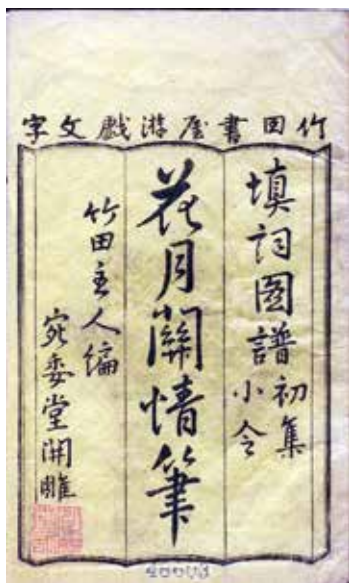 竹田書屋游戲文字
填詞圖譜初集
小令
花月關情筆
竹田主人編
宛委堂開雕